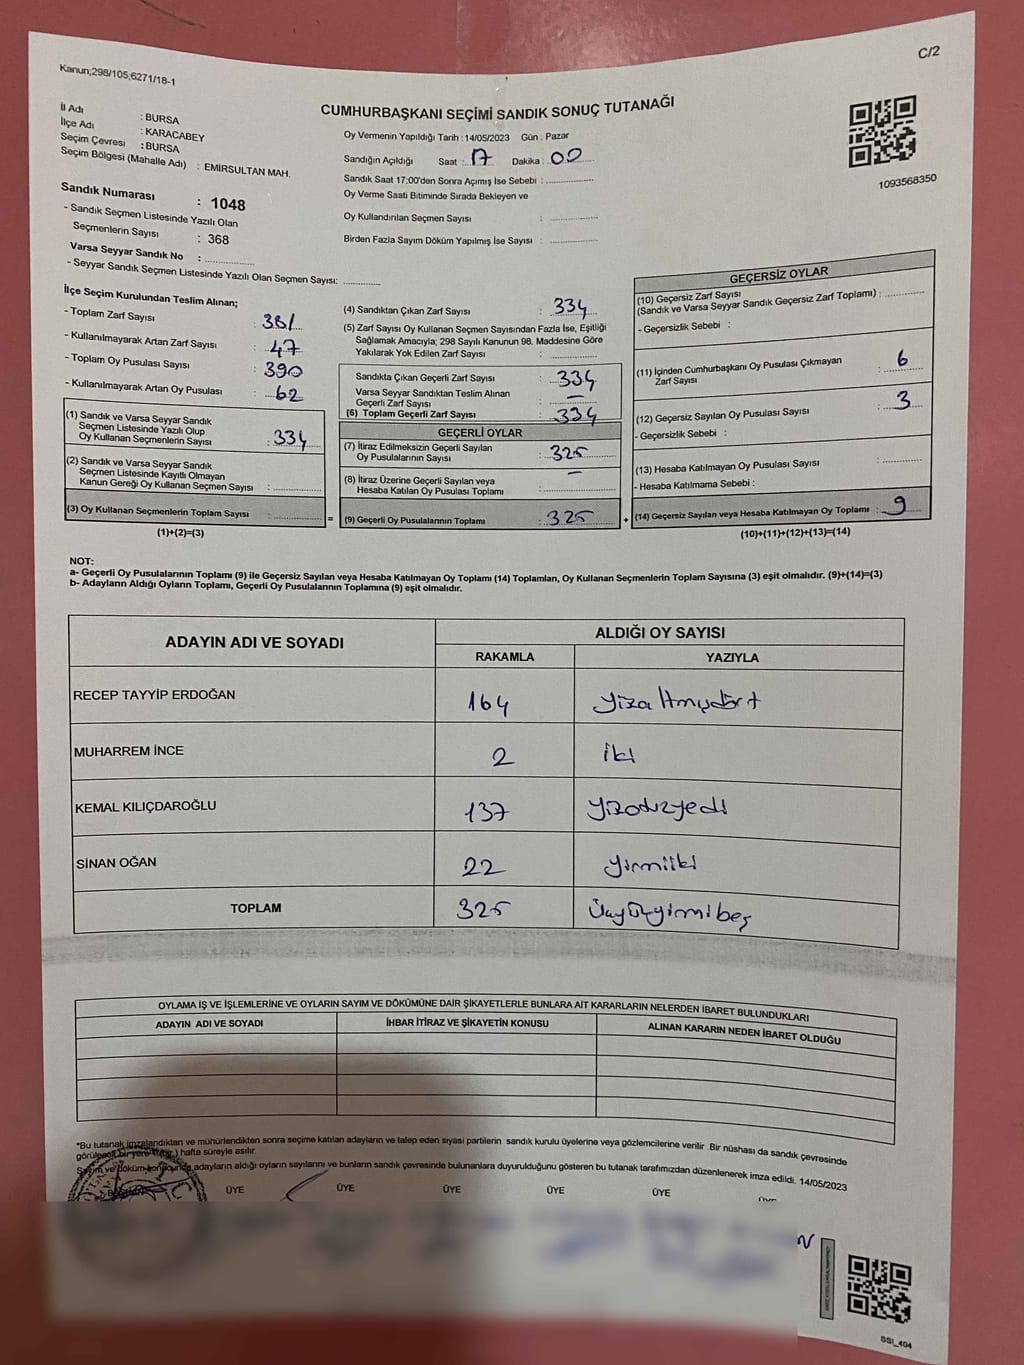 C/2
Kanun;298/105;6271/18-1
CUMHURBAŞKANI SEÇİMİ SANDIK SONUÇ TUTANAĞI
İl Adı : BURSA
İlçe Adı : KARACABEY
Seçim Çevresi : BURSA
Seçim Bölgesi (Mahalle Adı) : EMİRSULTAN MAH.
Sandık Numarası : 1048
- Sandık Seçmen Listesinde Yazılı Olan
Seçmenlerin Sayısı : 368
Varsa Seyyar Sandık No : ..............
- Seyyar Sandık Seçmen Listesinde Yazılı Olan Seçmen Sayısı: ..............
Oy Vermenin Yapıldığı Tarih :14/05/2023 Gün : Pazar
Sandığın Açıldığı Saat : 17 Dakika : 00
Sandık Saat 17:00'den Sonra Açımış İse Sebebi : ..............
Oy Verme Saati Bitiminde Sırada Bekleyen ve
Oy Kullandırılan Seçmen Sayısı : ..............
Birden Fazla Sayım Döküm Yapılmış İse Sayısı : ..............
1093568350
İlçe Seçim Kurulundan Teslim Alınan;
- Toplam Zarf Sayısı : 381
- Kullanılmayarak Artan Zarf Sayısı : 47
- Toplam Oy Pusulası Sayısı : 390
- Kullanılmayarak Artan Oy Pusulası : 62
(1) Sandık ve Varsa Seyyar Sandık
Seçmen Listesinde Yazılı Olup
Oy Kullanan Seçmenlerin Sayısı : 334
(2) Sandık ve Varsa Seyyar Sandık
Seçmen Listesinde Kayıtlı Olmayan
Kanun Gereği Oy Kullanan Seçmen Sayısı : ..............
(3) Oy Kullanan Seçmenlerin Toplam Sayısı : ..............
(1)+(2)=(3)
=
(4) Sandıktan Çıkan Zarf Sayısı : 334
(5) Zarf Sayısı Oy Kullanan Seçmen Sayısından Fazla İse, Eşitliği
Sağlamak Amacıyla; 298 Sayılı Kanunun 98. Maddesine Göre
Yakılarak Yok Edilen Zarf Sayısı : ..............
Sandıkta Çıkan Geçerli Zarf Sayısı : 334
Varsa Seyyar Sandıktan Teslim Alınan
Geçerli Zarf Sayısı : —
(6) Toplam Geçerli Zarf Sayısı : 334
GEÇERLİ OYLAR
(7) İtiraz Edilmeksizin Geçerli Sayılan
Oy Pusulalarının Sayısı : 325
(8) İtiraz Üzerine Geçerli Sayılan veya
Hesaba Katılan Oy Pusulası Toplamı : —
(9) Geçerli Oy Pusulalarının Toplamı : 325
+
GEÇERSİZ OYLAR
(10) Geçersiz Zarf Sayısı
(Sandık ve Varsa Seyyar Sandık Geçersiz Zarf Toplamı) : ..............
- Geçersizlik Sebebi :
(11) İçinden Cumhurbaşkanı Oy Pusulası Çıkmayan
Zarf Sayısı : 6
(12) Geçersiz Sayılan Oy Pusulası Sayısı : 3
- Geçersizlik Sebebi :
(13) Hesaba Katılmayan Oy Pusulası Sayısı : ..............
- Hesaba Katılmama Sebebi :
(14) Geçersiz Sayılan veya Hesaba Katılmayan Oy Toplamı : 9
(10)+(11)+(12)+(13)=(14)
NOT:
a- Geçerli Oy Pusulalarının Toplamı (9) ile Geçersiz Sayılan veya Hesaba Katılmayan Oy Toplamı (14) Toplamları, Oy Kullanan Seçmenlerin Toplam Sayısına (3) eşit olmalıdır. (9)+(14)=(3)
b- Adayların Aldığı Oyların Toplamı, Geçerli Oy Pusulalarının Toplamına (9) eşit olmalıdır.
ADAYIN ADI VE SOYADI
ALDIĞI OY SAYISI
RAKAMLA YAZIYLA
RECEP TAYYİP ERDOĞAN 164 Yüzaltmışdört
MUHARREM İNCE 2 iki
KEMAL KILIÇDAROĞLU 137 Yüzotuzyedi
SİNAN OĞAN 22 yirmiiki
TOPLAM 325 Üçyüzyirmibeş
OYLAMA İŞ VE İŞLEMLERİNE VE OYLARIN SAYIM VE DÖKÜMÜNE DAİR ŞİKAYETLERLE BUNLARA AİT KARARLARIN NELERDEN İBARET BULUNDUKLARI
ADAYIN ADI VE SOYADI İHBAR İTİRAZ VE ŞİKAYETİN KONUSU ALINAN KARARIN NEDEN İBARET OLDUĞU
*Bu tutanak imzalandıktan ve mühürlendikten sonra seçime katılan adayların ve talep eden siyasi partilerin sandık kurulu üyelerine veya gözlemcilerine verilir .Bir nüshası da sandık çevresinde
görülecek bir yere hafta süreyle asılır.
Sayım ve döküm sonucunda adayların aldığı oyların sayılarını ve bunların sandık çevresinde bulunanlara duyurulduğunu gösteren bu tutanak tarafımızdan düzenlenerek imza edildi. 14/05/2023
BAŞKAN ÜYE ÜYE ÜYE ÜYE ÜYE
SSI_404